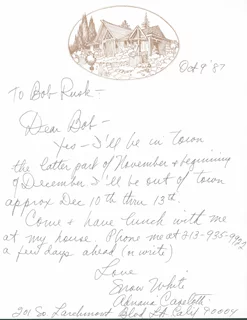 Oct 9 '87
To Bob Rusk —
Dear Bob —
Yes — I'll be in town
the latter part of November & beginning
of December I'll be out of town
approx Dec 10th thru 13th.
Come & have lunch with me
at my house. Phone me at 213-935-
a few days ahead (or write)
Love
Snow White
Adriana Caselotti
201 So. Larchmont Blvd LA Calif 90004